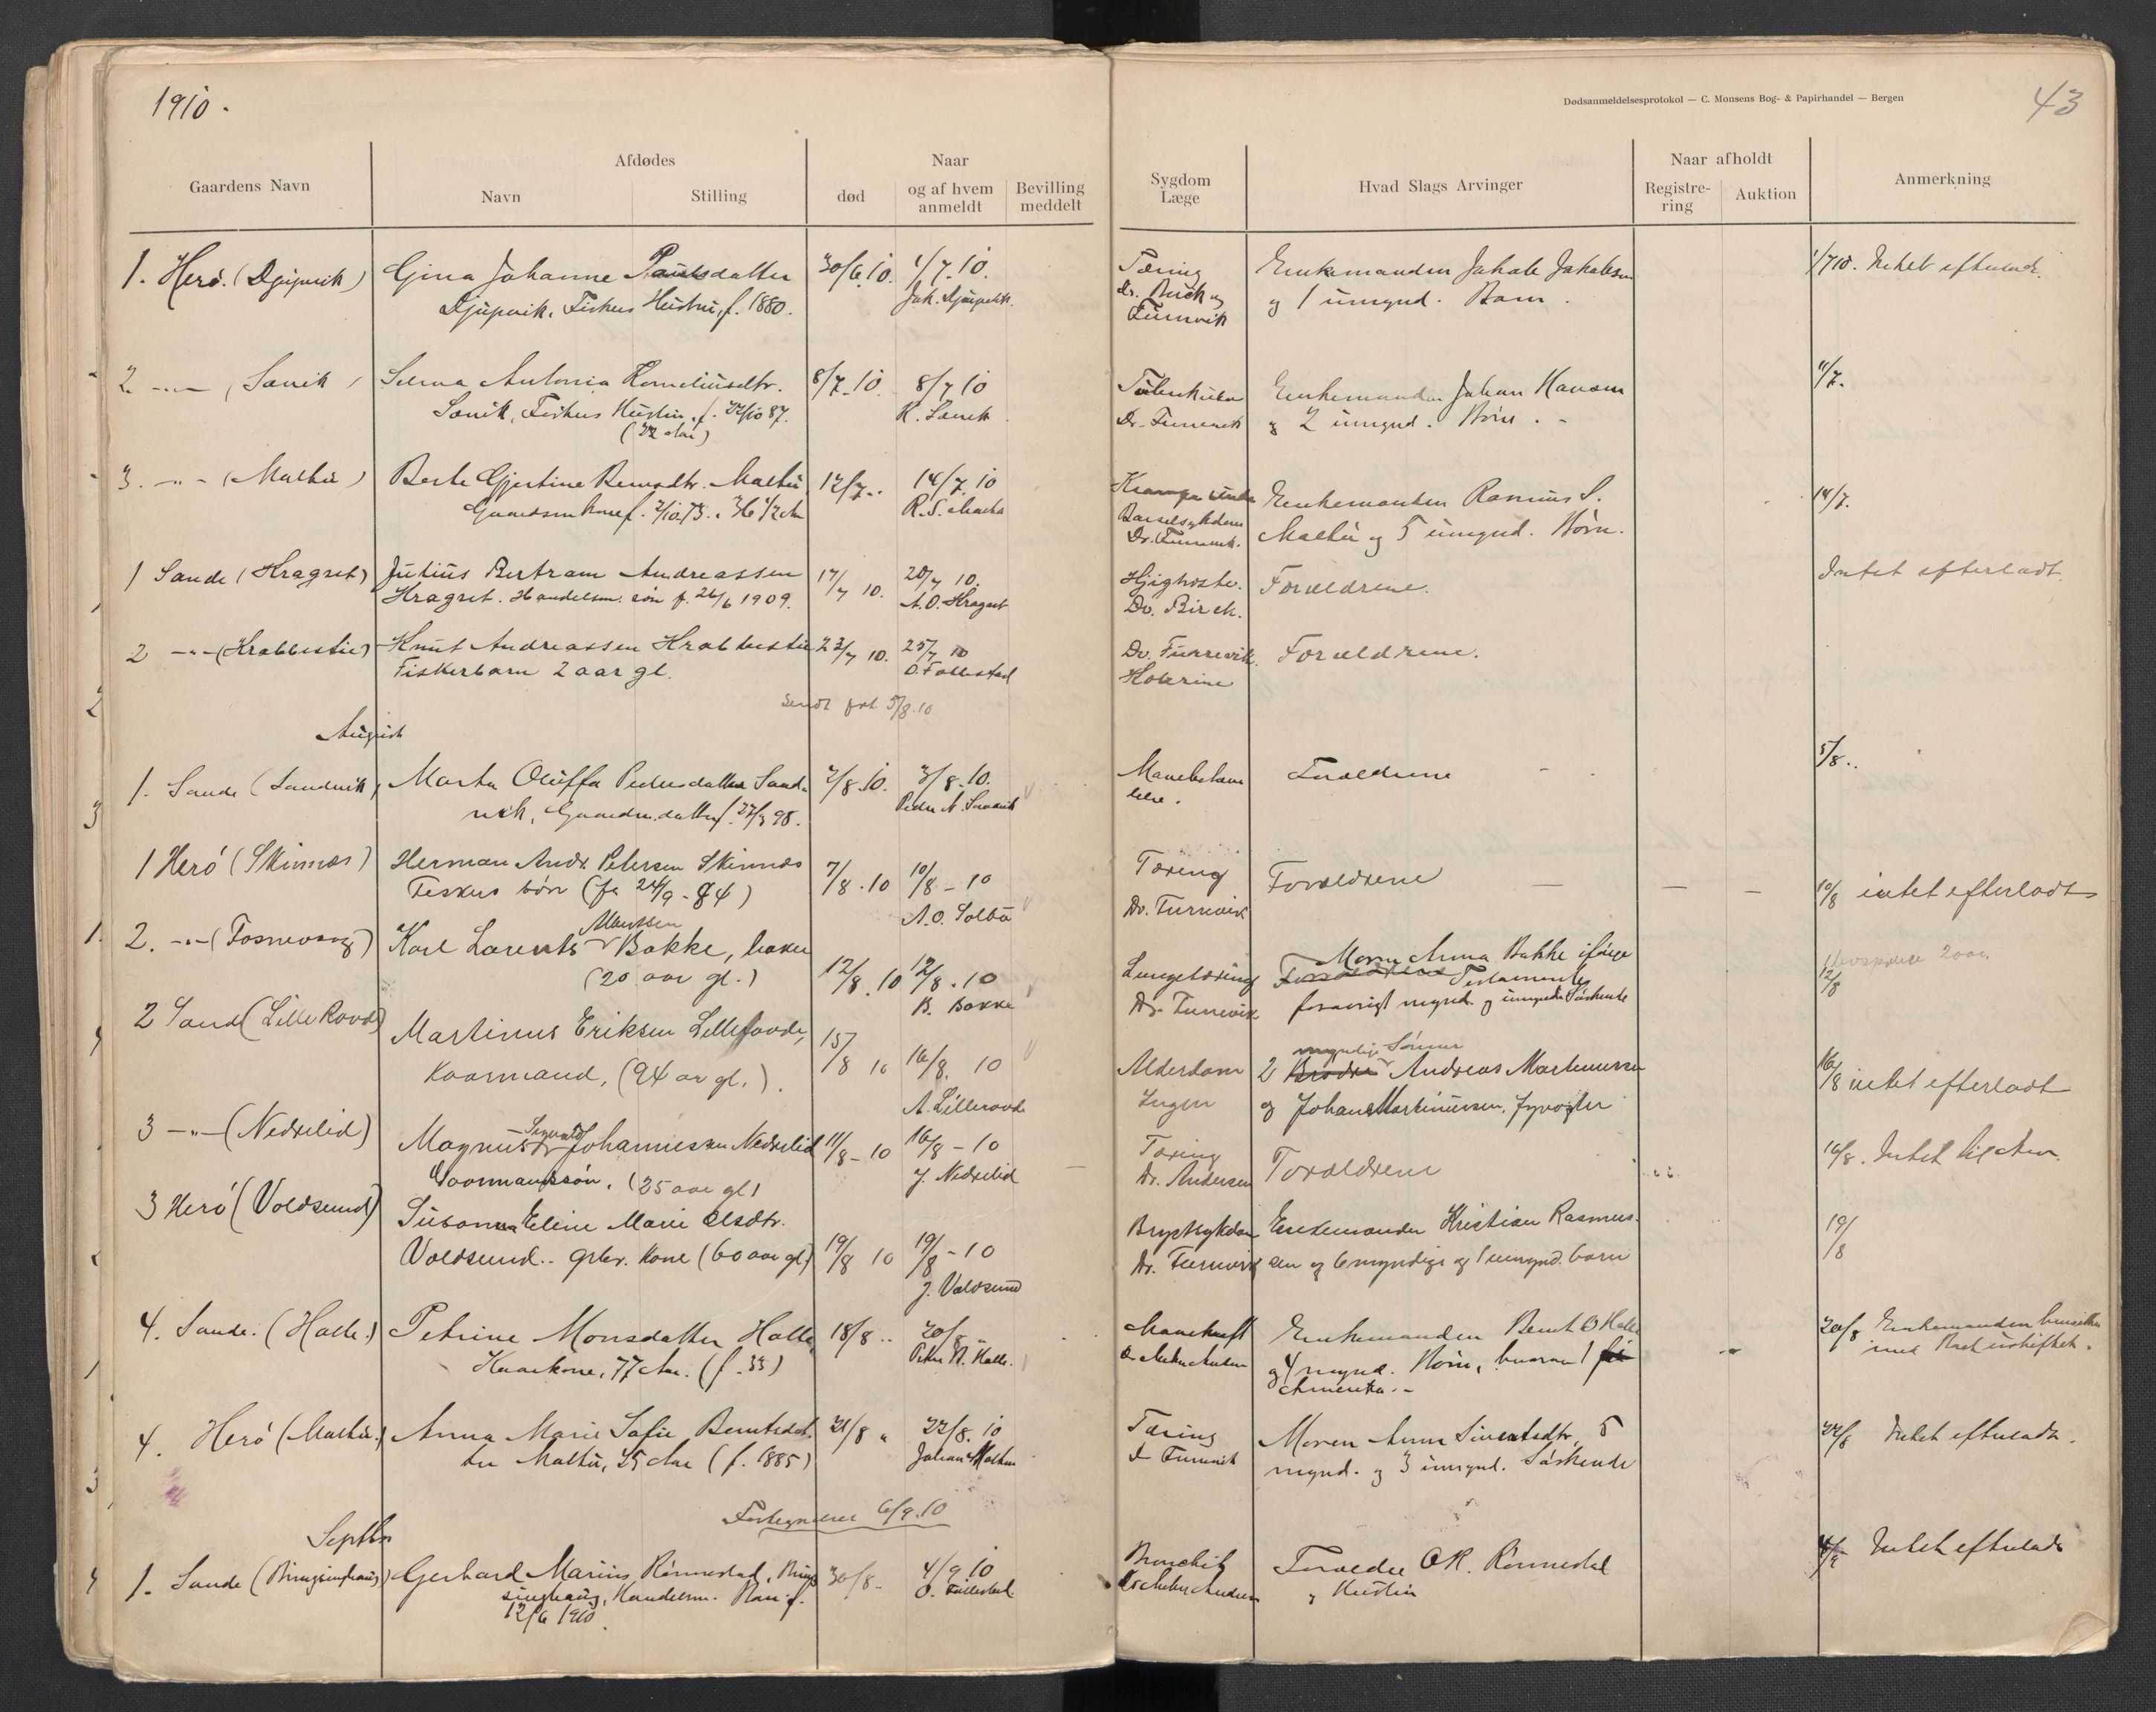 1910.
Dødsanmeldelsesprotokol — C. Monsens Bog- & Papirhandel — Bergen
43
Gaardens Navn
Afdødes
Navn
Stilling
Naar
død
og af hvem anmeldt
Bevilling meddelt
Sygdom
Læge
Hvad Slags Arvinger
Naar afholdt
Registrering
Auktion
Anmerkning
1. Herø. (Djupvik) Gina Johanne Paulsdatter 30/6.10. 1/7.10. Tæring Enkemanden Jakob Jakobsen 1/7 10. Intet efterladt.
Djupvik, Fiskers Hustru, f. 1880. Jak. Djupvik. Dr. Birck og og 1 umynd. Barn.
Furnevik
2. -"- (Sævik) Selma Antonia Korneliusdtr. 8/7.10 8/7 10 Enkemanden Johan Hansen 11/7.
Sævik, Fiskers Hustru, f. 22/10 87. K. Sævik Dr. Furnevik og 2 umynd. Børn.
(22 Aar)
3. -"- (Maltu) Berte Gjertine Berndtr. Maltu 12/7 .. 14/7.10 Krampe under Enkemanden Rasmus S. 14/7.
Gaardm. kone f. 2/10.73. 36 1/2 Aar Barselsykdom Maltu og 5 umynd. Børn.
Dr. Furnevik.
1 Sande (Kragset) Julius Bertram Andreassen 17/7 10. 20/7 10. Kighoste. Forældrene. Intet efterladt
Kragset. Handelsm. søn f. 26/6 1909. A.O. Kragset Dr. Birck.
2 -"- (Krabbestie) Knut Andreassen Krabbestie 23/7 10. 25/7 10 Dr. Furnevik. Forældrene.
Fiskerbarn 2 aar gl. O. Follestad Kolerine
Sendt fort. 5/8.10
August
1. Sande (Sandvik) Marta Oluffa Pedersdatter Sand- 2/8.10. 3/8.10. Forældrene 5/8..
vik, Gaardm. datter f. 27/3 98. Peder N. Sandvik
1 Herø (Skinnes) Herman Andr. Petersen Skinnes 7/8.10 10/8 - 10 Tæring Forældrene — — — 10/8 intet efterladt
Fiskers søn (fø 24/9 - 84) A.O. Solbø Dr. Furnevik
2. -"- (Fosnevaag) Karl Larents Mauritsen Bakke, baker 12/8.10 12/8.10 Lungetæring Moren Anna Bakke ifølge 12/8
(20 aar gl.) B. Bakke Dr. Furnevik Forældrene Testamente
forøvrigt mynd. og umyndi Søskende
2 Sand (Lille Rovde) Martinus Eriksen Lillerovde, 15/8 10 16/8. 10 Alderdom 2 Brødre myndige Sønner Andreas Martinussen 16/8 intet efterladt
Kaarmand, (94 aar gl.). A. Lillerovde Ingen og Johan Martinussen,
3 -"- (Nedrelid) Magnus Sigvald Johannessen Nedrelid 11/8 - 10 16/8 - 10 Tæring Forældrene 16/8. Intet
Gaarmanssøn. (25 aar gl) J. Nedrelid Dr. Andersen
3 Herø (Voldsund) Susanna Eline Marie Olsdtr. Brystsykdom Enkemanden Kristian Rasmus-
Voldsund.. grbr. Kone (60 aar gl) 19/8 10 19/8 - 10 Dr. Furnevik sen og 6 myndige og 1 umynd. barn 19/8
J. Voldsund
4. Sande. (Halle.) Petrine Monsdatter Halle, 18/8 .. 20/8 .. Mavekræft Enkemanden Bernt O Halle 20/8 Enkemanden hensitter
Kaarkone, 77 Aar. (f. 33) Peter B. Halle. og 4 mynd. Børn, hvoraf 1 fra med Bo uskiftet.
Amerika.
4. Herø (Maltu.) Anna Marie Sofie Berntsdat- 21/8 " 22/8.10 Tæring Moren Anna Sivertsdtr. 5 22/8 Intet efterladt.
ter Maltu, 25 Aar (f. 1885) Johan Maltu Dr Furnevik mynd. og 3 umynd. Søskende
Fortegnelse 6/9.10
Septbr
1. Sande (Bringsinghaug) Gerhard Marius Rønnestad, Bring- 30/8 - 4/9 10 Bronchit Forældre O.R. Rønnestad 4/9 Intet efterladt
singhaug, Handelsm. Barn f. O. Follestad og Hustru
12/6 1910.